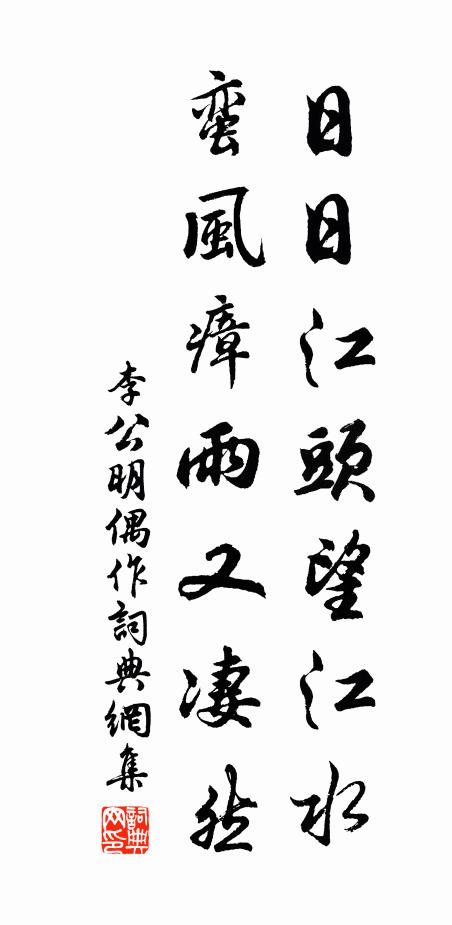 日日江頭望江水
蠻風瘴雨又凄然
李公明偶作詞典網集
詞典網印